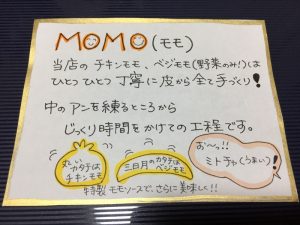 MOMO(モモ)
当店の チキンモモ、ベジモモ(野菜のみ!)は
ひとつ ひとつ 丁寧に 皮から 全て 手づくり!
中のアンを練るところから
じっくり時間をかけての工程です。
丸い
カタチは
チキンモモ
三日月のカタチは
ベジモモ
お〜っ!!
ミトチャ(うまい)!
特製 モモソースで、さらに美味しく!!